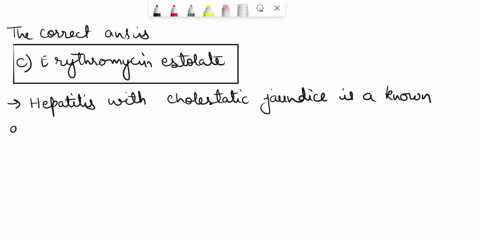 The correct ans is
c) Erythromycin estolate
→ Hepatitis with cholestatic jaundice is a known